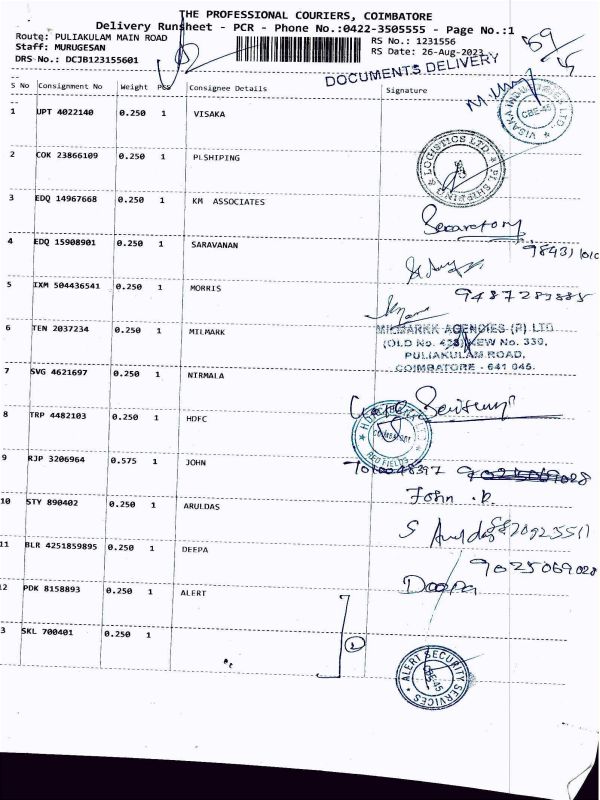 THE PROFESSIONAL COURIERS, COIMBATORE
Delivery Runsheet - PCR - Phone No.:0422-3505555 - Page No.:1
Route: PULIAKULAM MAIN ROAD RS No.: 1231556
Staff: MURUGESAN RS Date: 26-Aug-2023
DRS No.: DCJB123155601
DOCUMENTS DELIVERY
S No Consignment No Weight PCS Consignee Details Signature
1 UPT 4022140 0.250 1 VISAKA
CBE-45
2 COK 23866109 0.250 1 PLSHIPING
LOGISTICS LTD
3 EDQ 14967668 0.250 1 KM ASSOCIATES
4 EDQ 15908901 0.250 1 SARAVANAN
5 IXM 504436541 0.250 1 MORRIS
6 TEN 2037234 0.250 1 MILMARK
MILMARKK AGENCIES (P) LTD
(OLD No. 428) NEW No. 330,
PULIAKULAM ROAD,
COIMBATORE - 641 045.
7 SVG 4621697 0.250 1 NIRMALA
8 TRP 4482103 0.250 1 HDFC
RED FIELDS
9 RJP 3206964 0.575 1 JOHN
John
10 STY 890402 0.250 1 ARULDAS
S Aruldas
11 BLR 4251859895 0.250 1 DEEPA
9025069028
Deepa
12 PDK 8158893 0.250 1 ALERT
3 SKL 700401 0.250 1
2
ALERT SECURITY SERVICES
CBE-45